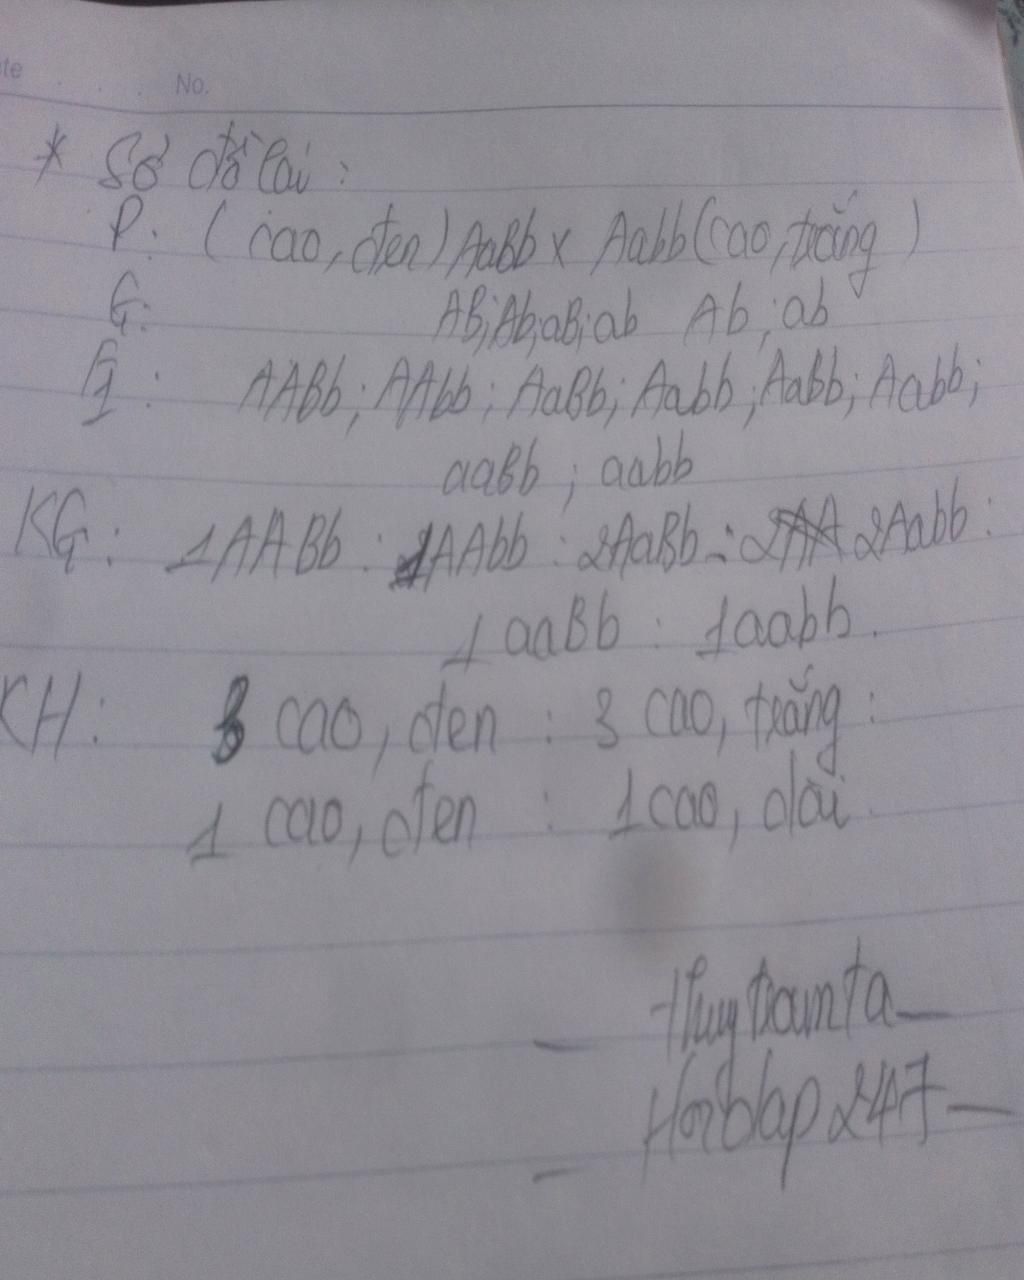 te No.
* Sơ đồ lai :
P: (cao, đen) AaBb x Aabb (cao, trắng)
G: AB; Ab; aB; ab Ab; ab
F1: AABb; AAbb; AaBb; Aabb; AaBb; Aabb;
aaBb; aabb
KG: 1AABb : 1AAbb : 2AaBb : 2AA 2Aabb :
1aaBb : 1aabb.
KH: 3 cao, đen : 3 cao, trắng :
1 cao, đen : 1 cao, dài
Thuytramta
Hoidap247